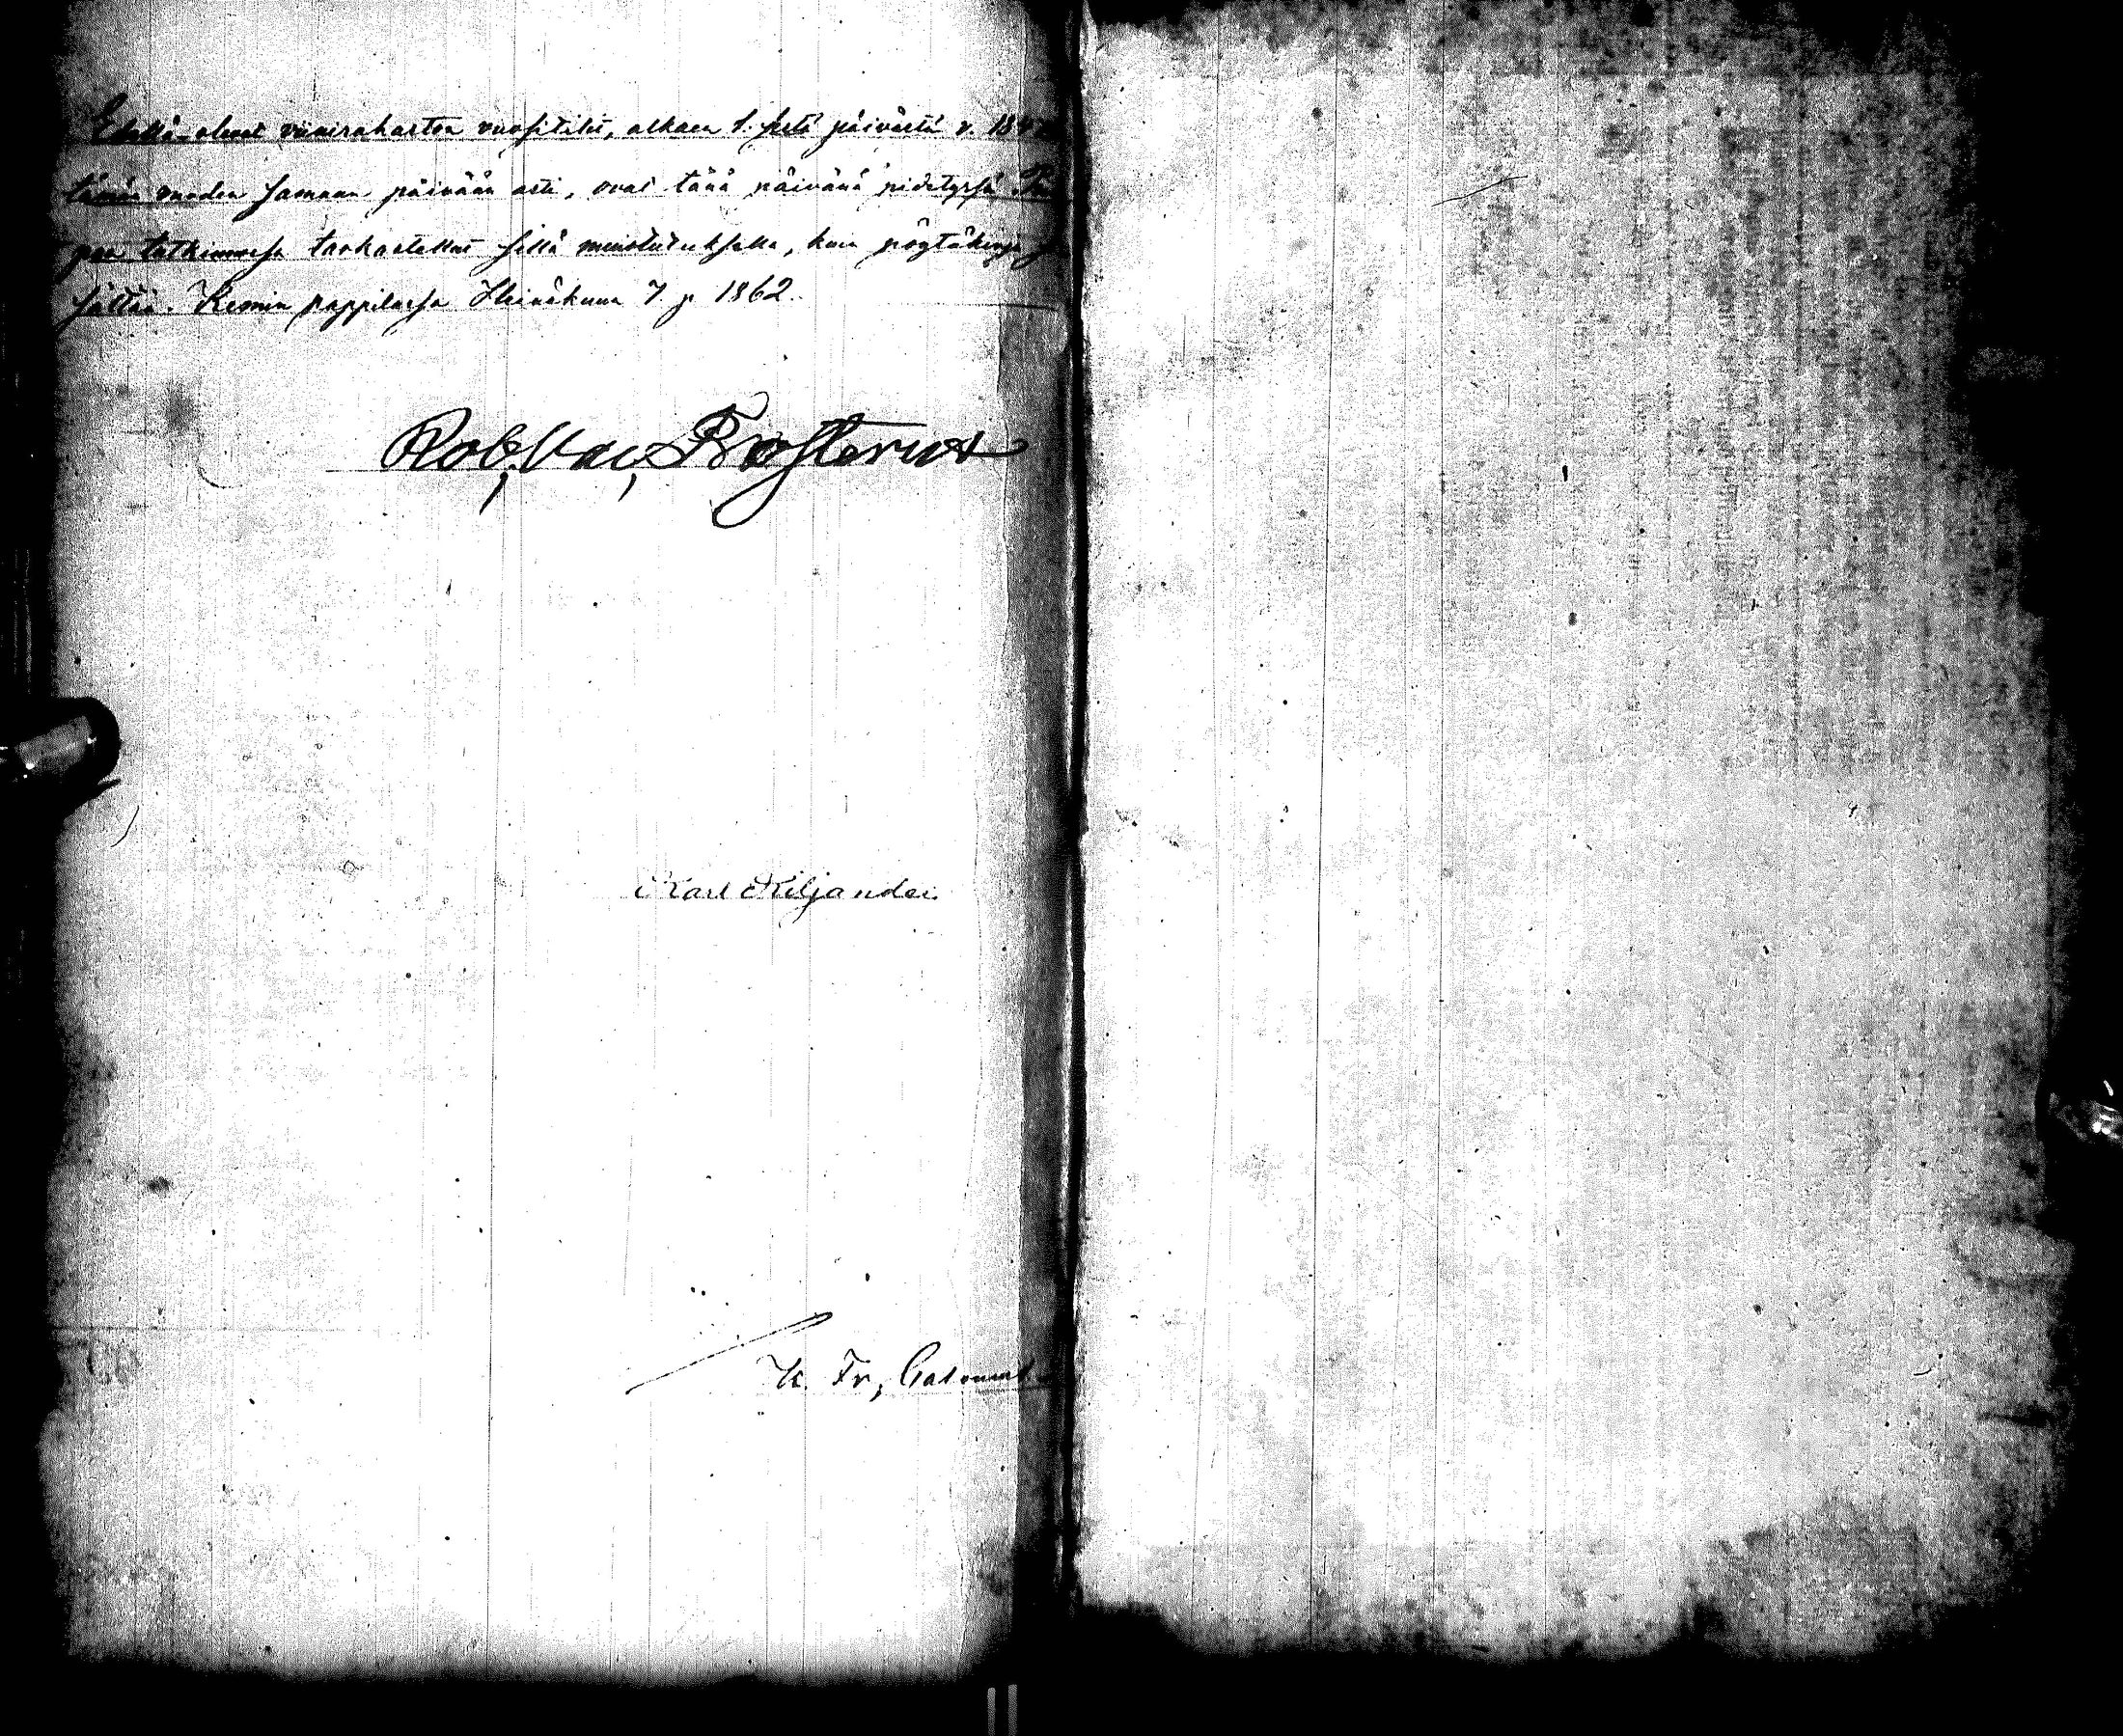 Edellä olevat viinirahaston vuositilit, alkaen 1. päivästä v. 184
tämän vuoden samaan päivään asti, ovat tänä päivänä pidetyssä
tutkinnossa tarkastellut sillä muistutuksella, kuin pöytäkirja
sältää. Kemin pappilassa Heinäkuun 7. p. 1862.
Rob. Val. Frosterus
Karl Kiljander.
K. Fr,